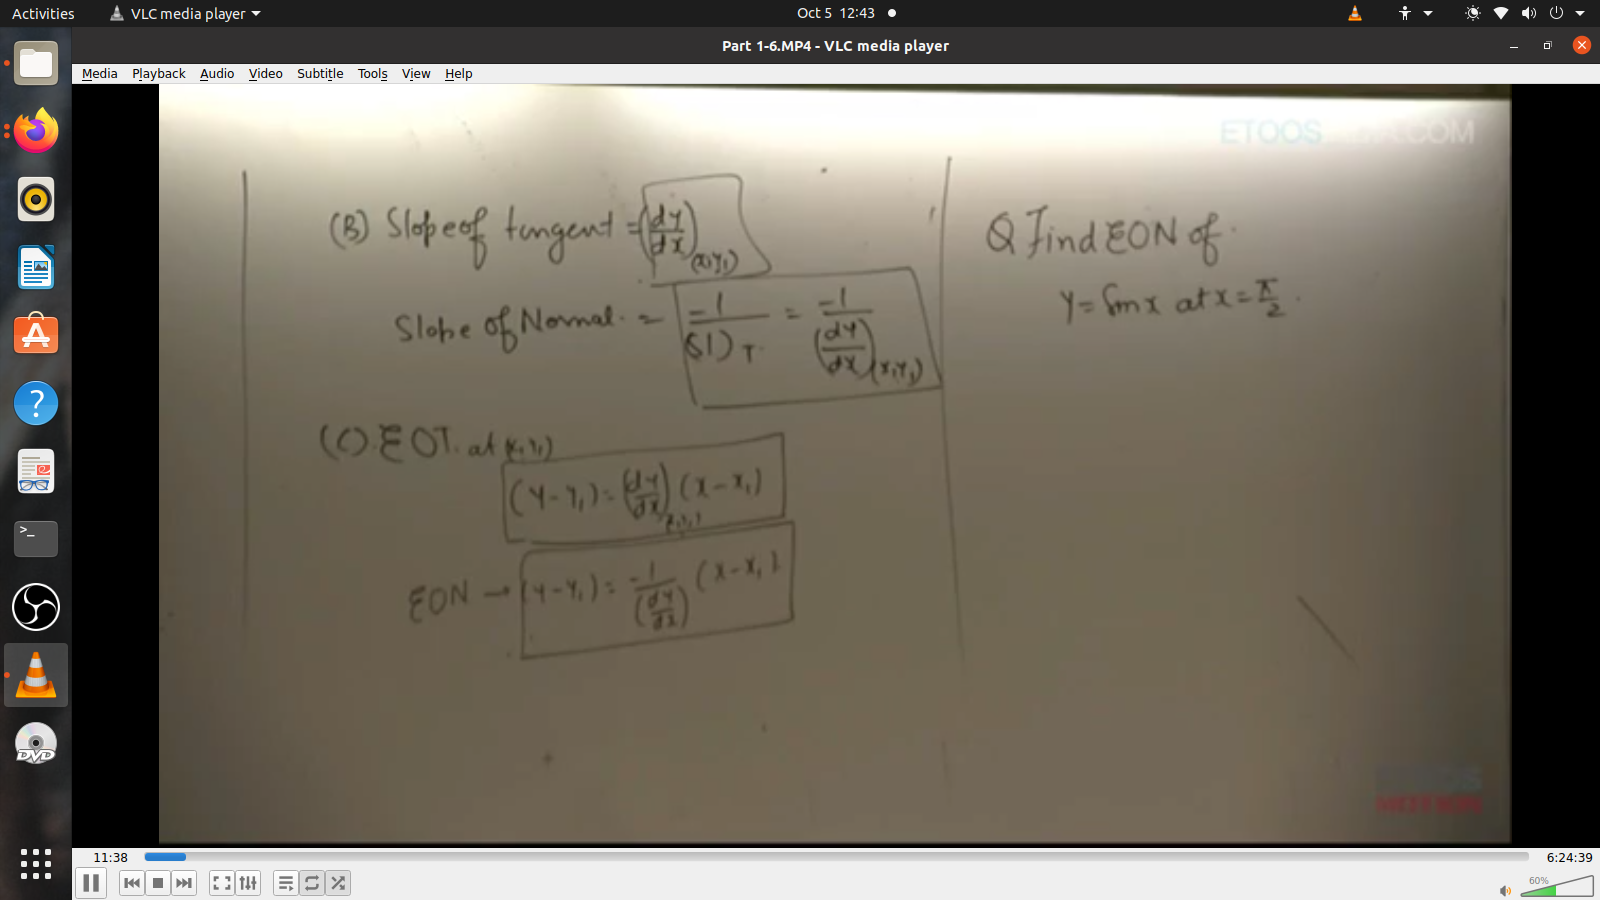 Activities VLC media player Oct 5 12:43
Part 1-6.MP4 - VLC media player
Media Playback Audio Video Subtitle Tools View Help
ETOOS .COM
(B) Slope of tangent = (dy/dx)(x₁y₁)
Slope of Normal = -1/(Sl)T = -1/(dy/dx)(x₁y₁)
(C) EOT at (x₁y₁)
(y-y₁) = (dy/dx)x₁y₁ (x-x₁)
EON → (y-y₁) = -1/(dy/dx) (x-x₁)
Q Find EON of
y = Sin x at x = π/2
11:38 6:24:39
60%